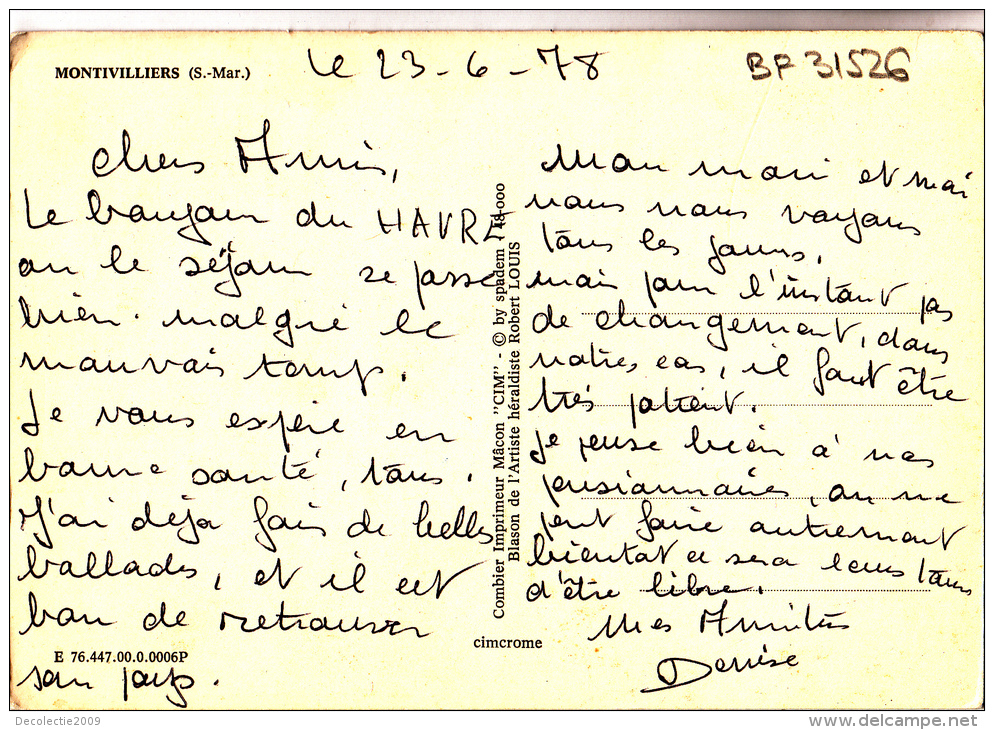 MONTIVILLIERS (S.-Mar.)
le 23-6-78
BF 31526
chers Amis,
Le bonjour du HAVRE
ou le séjour se passe
bien. malgré le
mauvais temps.
Je vous espère en
bonne santé, tous.
J'ai déja fais de belles
ballades, et il est
bon de retrouver
son pays.
Mon mari et moi
nous nous voyons
tous les jours,
mais pour l'instant pas
de changement, dans
notres cas, il faut être
très patient.
je pense bien à nos
pensionnaires, on ne
peut faire autrement
bientot ce sera leurs tours
d'être libre.
Mes Amitiés
Denise
Combier Imprimeur Mâcon "CIM" - © by spadem - 18-000
Blason de l'Artiste héraldiste Robert LOUIS
cimcrome
E 76.447.00.0.0006P
Decolectie2009
www.delcampe.net